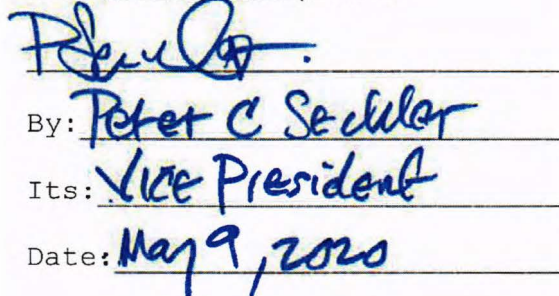 By: Peter C Seckler
Its: Vice President
Date: May 9, 2020